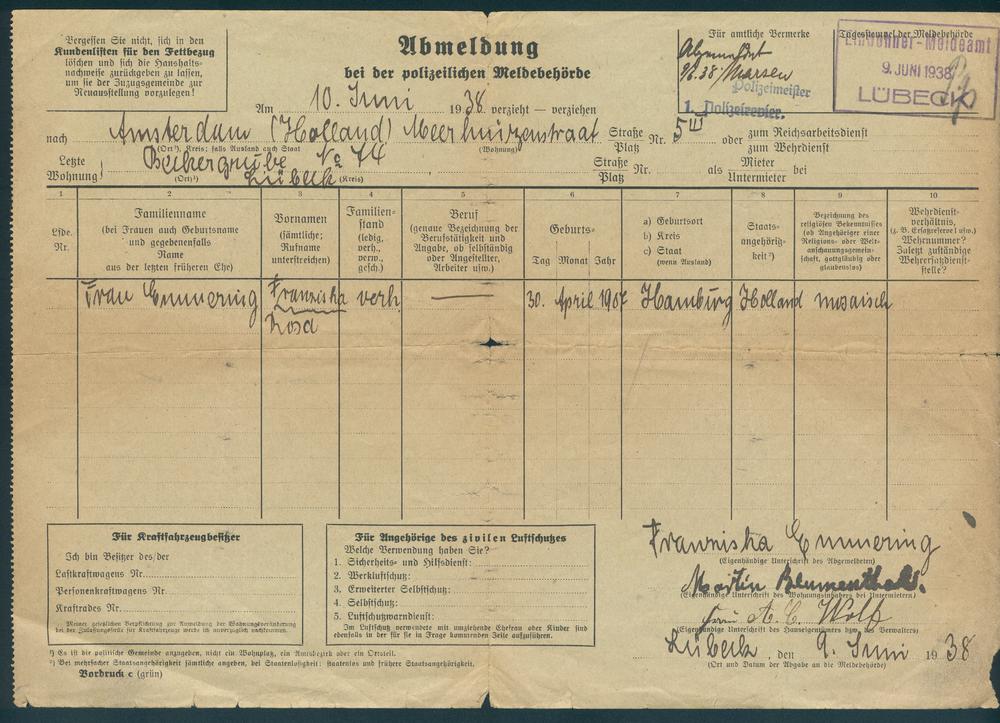 Vergessen Sie nicht, sich in den
Kundenlisten für den Fettbezug
löschen und sich die Haushalts-
nachweise zurückgeben zu lassen,
um sie der Zuzugsgemeinde zur
Neuausstellung vorzulegen!
Abmeldung
bei der polizeilichen Meldebehörde
Für amtliche Bermerke
Tagesstempel der Meldebehörde
Abgemeldet
9/6.38/
Polizeimeister
1. Polizeirevier.
Einwohner-Meldeamt
9. JUNI 1938
LÜBECK
Am 10. Juni 1938 verzieht – verziehen
nach Amsterdam (Holland) Meerhuizenstraat Straße Platz Nr. 5 III oder zum Reichsarbeitsdienst zum Wehrdienst
(Ort¹), Kreis; falls Ausland auch Staat (Wohnung)
Letzte Wohnung Beckergrube No 74 Lübeck Straße Platz Nr. als Mieter Untermieter bei
(Ort¹) (Kreis)
1 2 3 4 5 6 7 8 9 10
Lfde. Nr.
Familienname
(bei Frauen auch Geburtsname
und gegebenenfalls
Name
aus der letzten früheren Ehe)
Vornamen
(sämtliche;
Rufname
unterstreichen)
Familien-
stand
(ledig,
verh.,
verw.,
gesch.)
Beruf
(genaue Bezeichnung der
Berufstätigkeit und
Angabe, ob selbständig
oder Angestellter,
Arbeiter usw.)
Geburts-
Tag Monat Jahr
a) Geburtsort
b) Kreis
c) Staat
(wenn Ausland)
Staats-
angehörig-
keit²)
Bezeichnung des
religiösen Bekenntnisses
(ob Angehöriger einer
Religions- oder Welt-
anschauungsgemein-
schaft, gottgläubig oder
glaubenslos)
Wehrdienst-
verhältnis,
(z. B. Ersatzreserve I usw.)
Wehrnummer?
Zuletzt zuständige
Wehrersatzdienst-
stelle?
Frau Emmering Franziska verh. — 30. April 1907 Hamburg Holland mosaisch
Rosa
Für Kraftfahrzeugbesitzer
Ich bin Besitzer des/der
Lastkraftwagens Nr.
Personenkraftwagens Nr.
Kraftrades Nr.
Meiner gesetzlichen Verpflichtung zur Anmeldung der Wohnungsveränderung
bei der Zulassungsstelle für Kraftfahrzeuge werde ich unverzüglich nachkommen.
Für Angehörige des zivilen Luftschutzes
Welche Verwendung haben Sie?
1. Sicherheits- und Hilfsdienst:
2. Werkluftschutz:
3. Erweiterter Selbstschutz:
4. Selbstschutz:
5. Luftschutzwarndienst:
Im Luftschutz verwendete mit umziehende Ehefrau oder Kinder sind
ebenfalls in der für sie in Frage kommenden Zeile aufzuführen.
Franziska Emmering
(Eigenhändige Unterschrift des Abgemeldeten)
Martin Blumenthal.
(Eigenhändige Unterschrift des Wohnungsinhabers bei Untermietern)
A. C. Wolf
(Eigenhändige Unterschrift des Hauseigentümers bzw. des Verwalters)
Lübeck, den 9. Juni 1938
(Ort und Datum der Abgabe an die Meldebehörde)
¹) Es ist die politische Gemeinde anzugeben, nicht ein Wohnplatz, ein Amtsbezirk oder ein Ortsteil.
²) Bei mehrfacher Staatsangehörigkeit sämtliche angeben, bei Staatenlosigkeit: staatenlos und frühere Staatsangehörigkeit.
Vordruck c (grün)